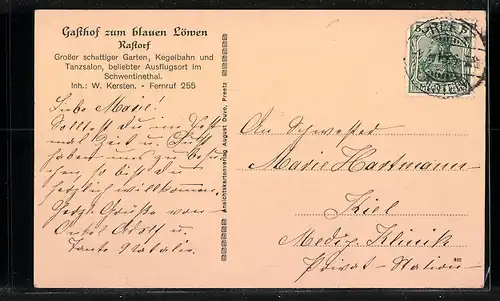 Gasthof zum blauen Löwen
Rastorf
Großer schattiger Garten, Kegelbahn und
Tanzsalon, beliebter Ausflugsort im
Schwentinethal.
Inh.: W. Kersten. - Fernruf 255
Liebe Marie!
Solltest du im
mal Zeit u. Lust
haben uns zu besu-
chen so bist du
herzlich willkommen.
Herzl. Grüsse von
Onkel Adolf u.
Tante Natalie.
Ansichtskartenverlag August Durb, Preetz
PREETZ
An Schwester
Marie Hartmann
Kiel
Mediz. Klinik
Privat-Station